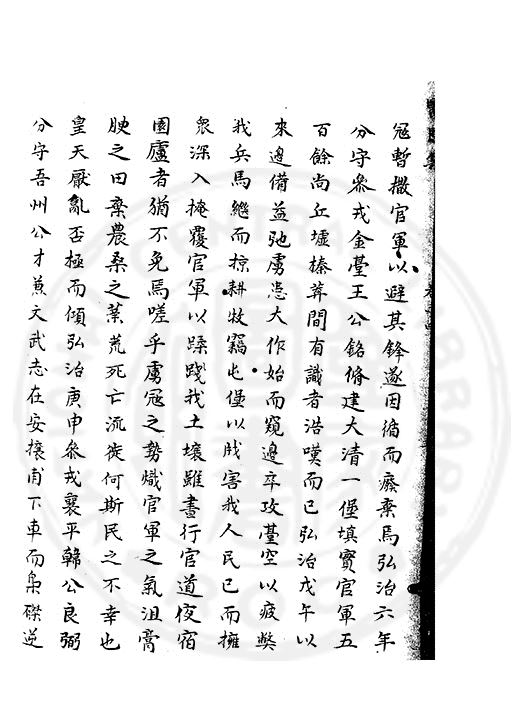 寇暫撤官軍以避其鋒遂因循而廢棄焉弘治六年
分守叅戎金臺王公銘脩建大清一堡填實官軍五
百餘尚丘墟榛莽間有識者浩嘆而已弘治戊午以
來邊備益弛虜患大作始而窺邊卒攻臺空以疲獘
我兵馬繼而掠耕牧竊屯堡以戕害我人民已而擁
衆深入掩覆官軍以蹂踐我土壤雖晝行官道夜宿
園廬者猶不免焉嗟乎虜寇之勢熾官軍之氣沮膏
腴之田棄農桑之業荒死亡流徙何斯民之不幸也
皇天厭亂否極而傾弘治庚申叅戎襄平韓公良弼
分守吾州公才兼文武志在安攘甫下車而梟磔逆